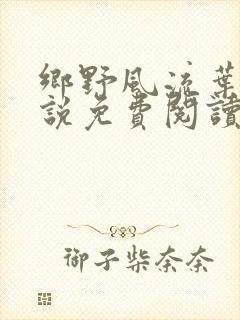 鄉野風流葉
說免費閱讀
御子柴奈奈